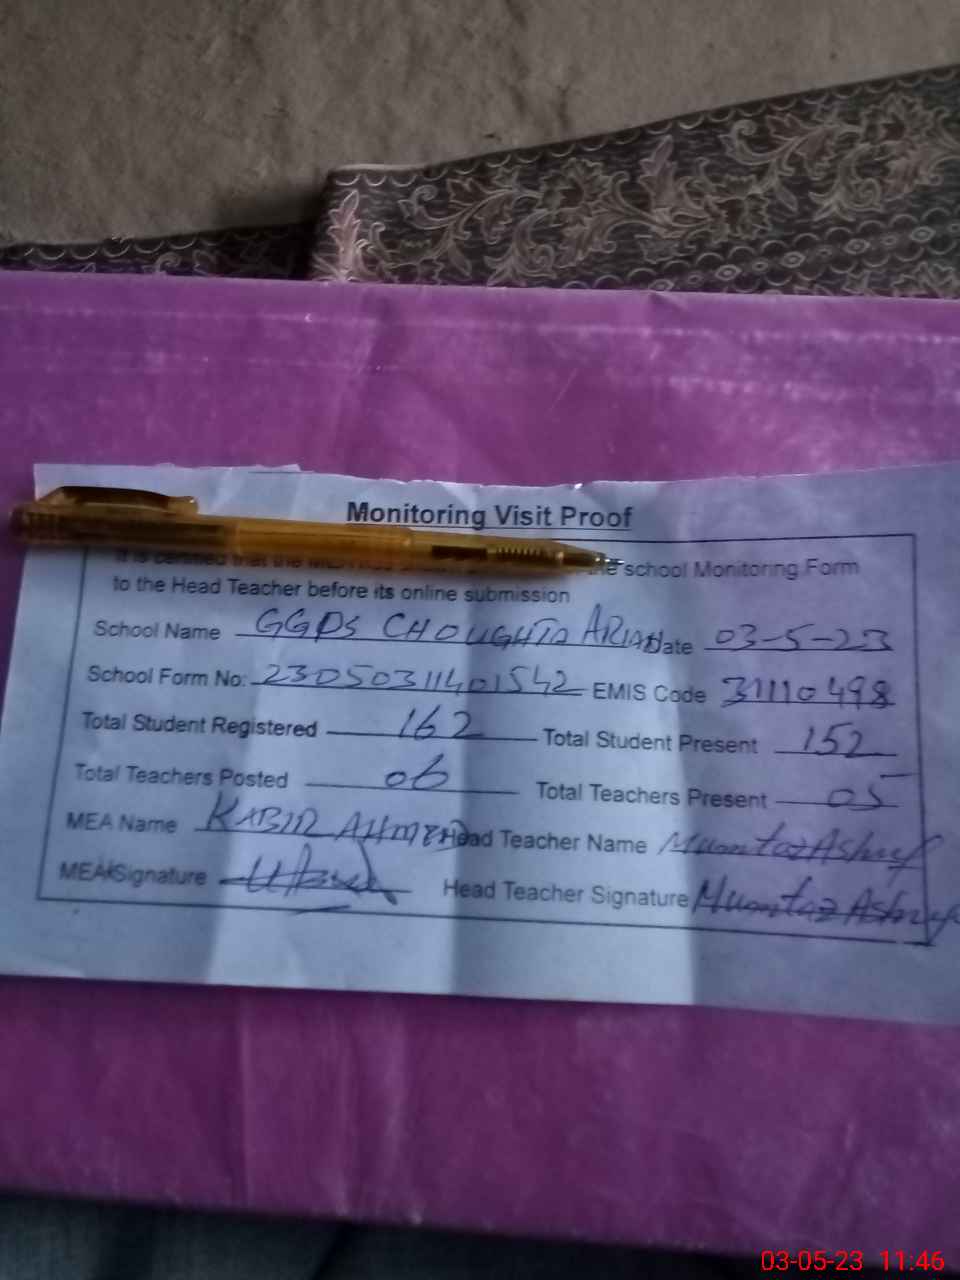 Monitoring Visit Proof
the school Monitoring Form
to the Head Teacher before its online submission
School Name GGPS CHOUGHTA ARIAN Date 03-5-23
School Form No: 23050311401542 EMIS Code 31110498
Total Student Registered 162 Total Student Present 152
Total Teachers Posted 06 Total Teachers Present 05
MEA Name KABIR AHMED Head Teacher Name Mumtaz Ashraf
MEA Signature Head Teacher Signature Mumtaz Ashraf
03-05-23 11:46